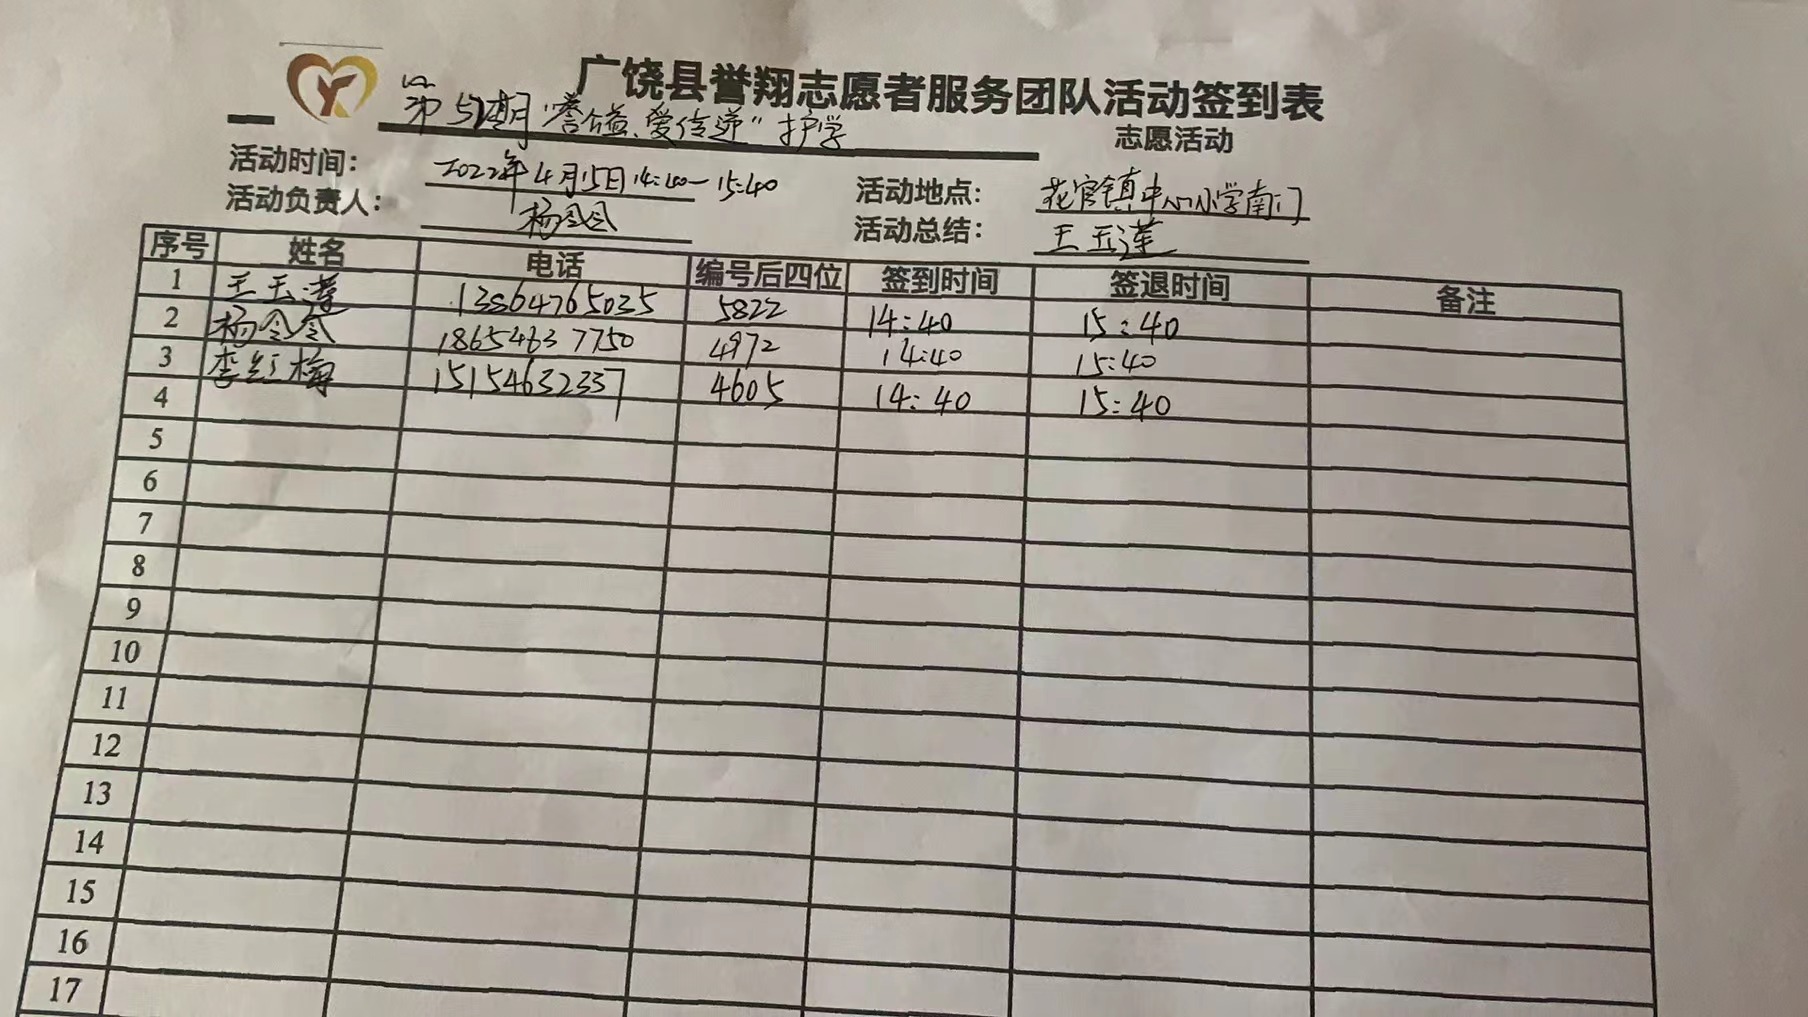 广饶县誉翔志愿者服务团队活动签到表
第51期"誉益、爱传递"护学 志愿活动
活动时间: 2022年4月15日14:40-15:40 活动地点: 花官镇中心小学南门
活动负责人: 杨令令 活动总结: 王玉莲
序号 姓名 电话 编号后四位 签到时间 签退时间 备注
1 王玉莲 13864765035 5822 14:40 15:40
2 杨令令 18654637750 4972 14:40 15:40
3 李红梅 15154632337 4605 14:40 15:40
4
5
6
7
8
9
10
11
12
13
14
15
16
17